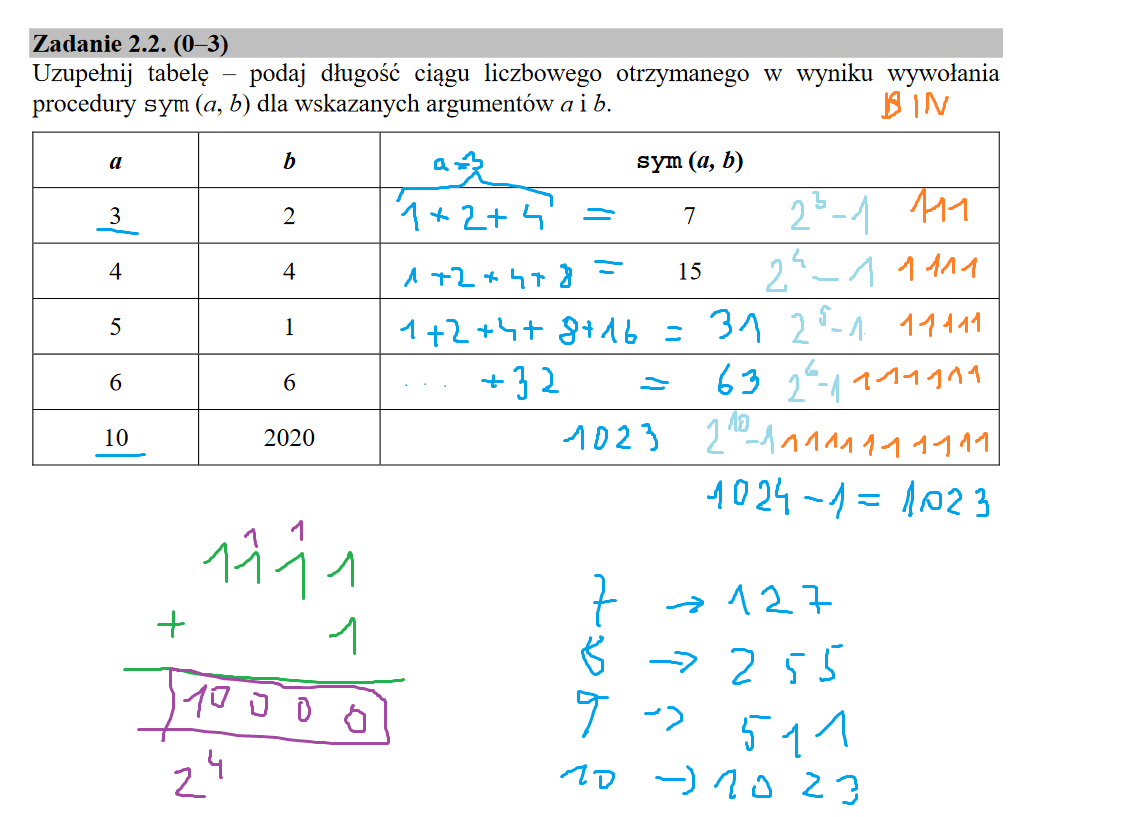 Zadanie 2.2. (0–3)
Uzupełnij tabelę – podaj długość ciągu liczbowego otrzymanego w wyniku wywołania
procedury sym (a, b) dla wskazanych argumentów a i b.
BIN
a b a=3 sym (a, b)
3 2 1+2+4 = 7 2^3-1 111
4 4 1+2+4+8 = 15 2^4-1 1111
5 1 1+2+4+8+16 = 31 2^5-1 11111
6 6 .... +32 = 63 2^6-1 111111
10 2020 1023 2^10-1 1111111111
1024-1=1023
1 1
1111
+ 1
10000
2^4
7 → 127
8 → 255
9 → 511
10 → 1023